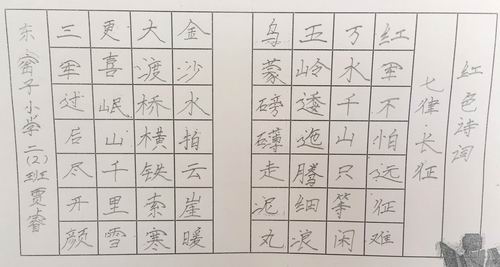 红色诗词
七律·长征
红军不怕远征难
万水千山只等闲
五岭逶迤腾细浪
乌蒙磅礴走泥丸
金沙水拍云崖暖
大渡桥横铁索寒
更喜岷山千里雪
三军过后尽开颜
东窑子小学二(2)班贾睿